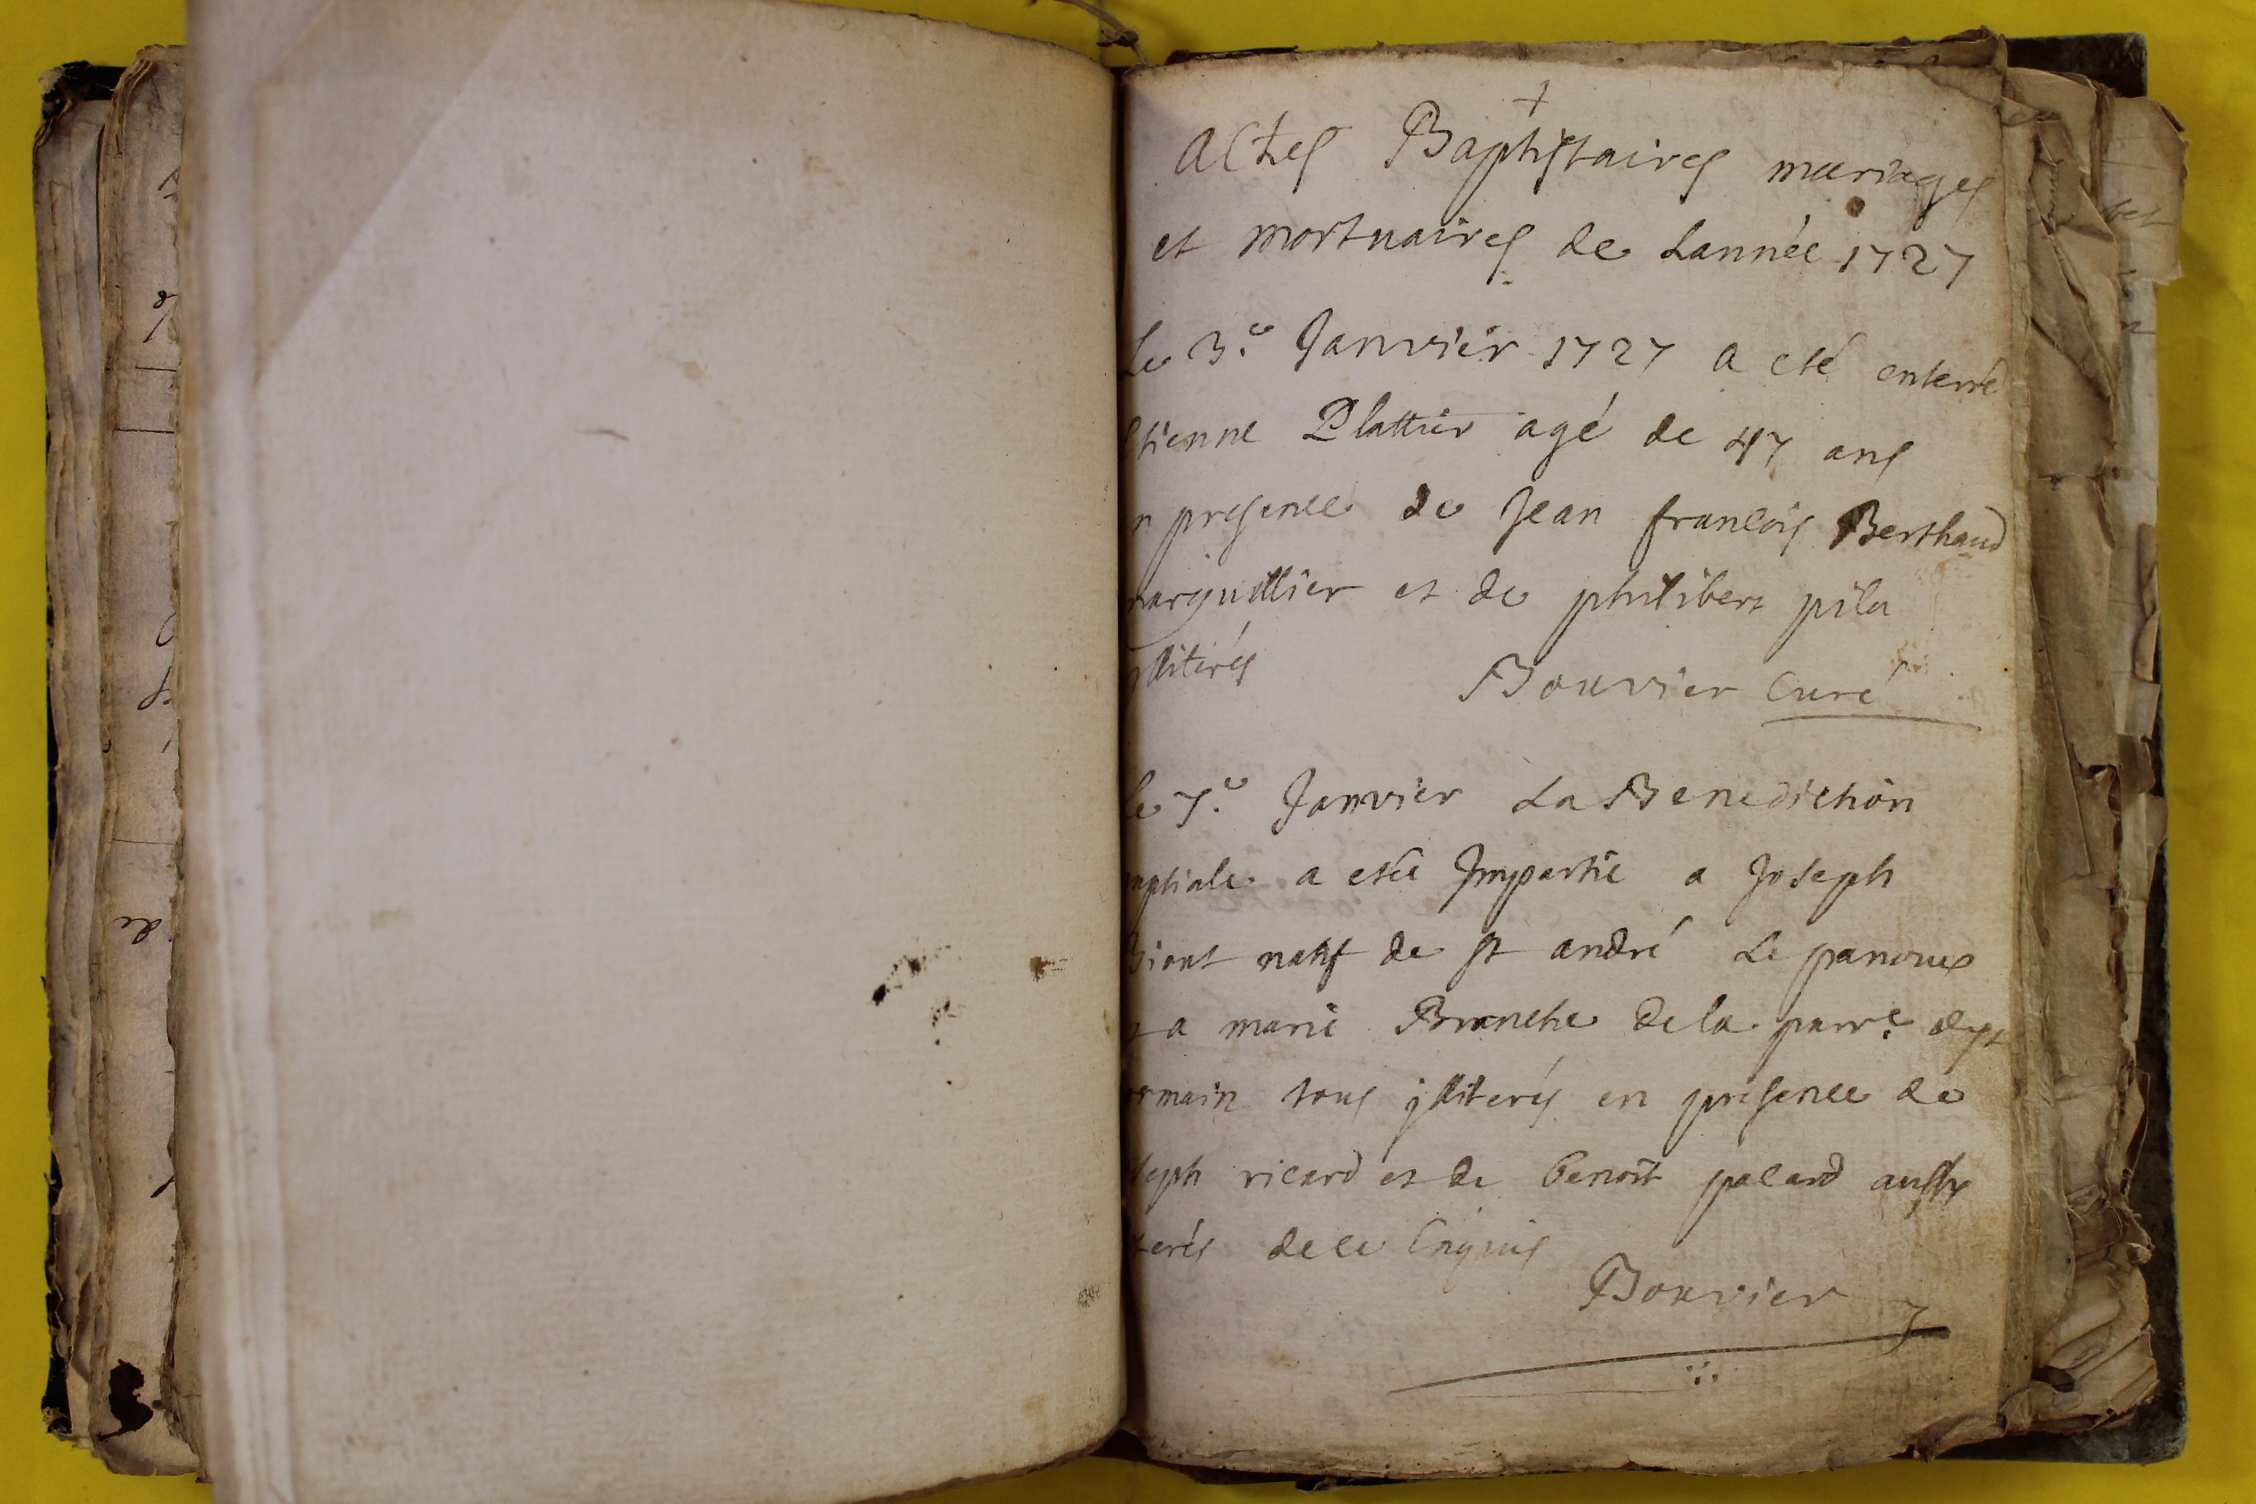 +
Actes Baptistaires mariages
et mortuaires de Lannée 1727
Le 3.e Janvier 1727 a eté enterré
tienne Plattier agé de 47 ans
n presence de Jean francois Berthaud
marguillier et de philibert pila
illiterés Bouvier Curé
le 7.e Janvier La Benediction
nuptiale a etée Impartie a Joseph
natif de st andré Le panoux
a marie Branche de la parr.e de st
ermain tous illiterés en presence de
oseph ricard et de Benoit palard aussy
terés de ce Enquis
Bouvier